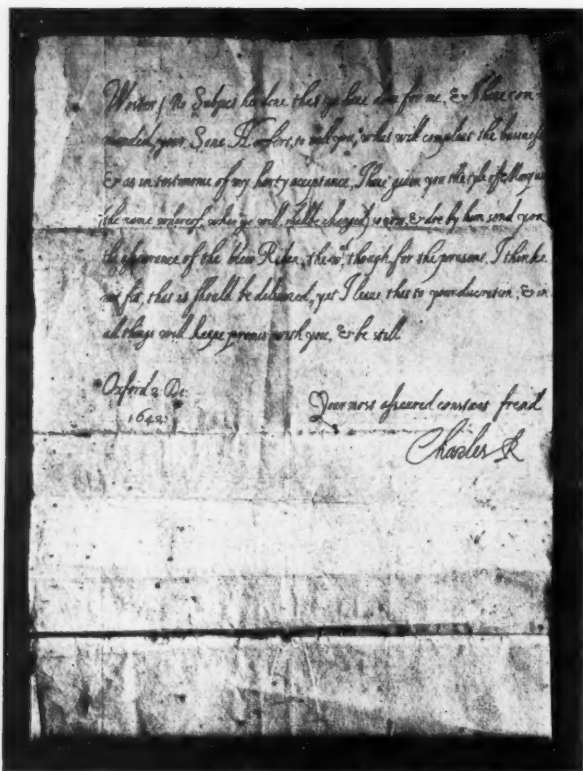 Woster / No Subject hes done that ye have done for me, & I have com-
manded, your Sone Harfort, to tell you, what will compleat the businesse
& as in testimonie of my harty acceptance, I have given you the tytle of a Marquis
(the name whereof, when ye will, shalbe changed) is now, & doe by him send you
the assurance of the blew Riben, the wch, though for the present, I thinke
not fit, that it should be declaired, yet I leave that to your discretion, & in
all things will keepe promis with you, & be still
Oxford 2 De:
1642:
Your most asseured constant freind
Charles R